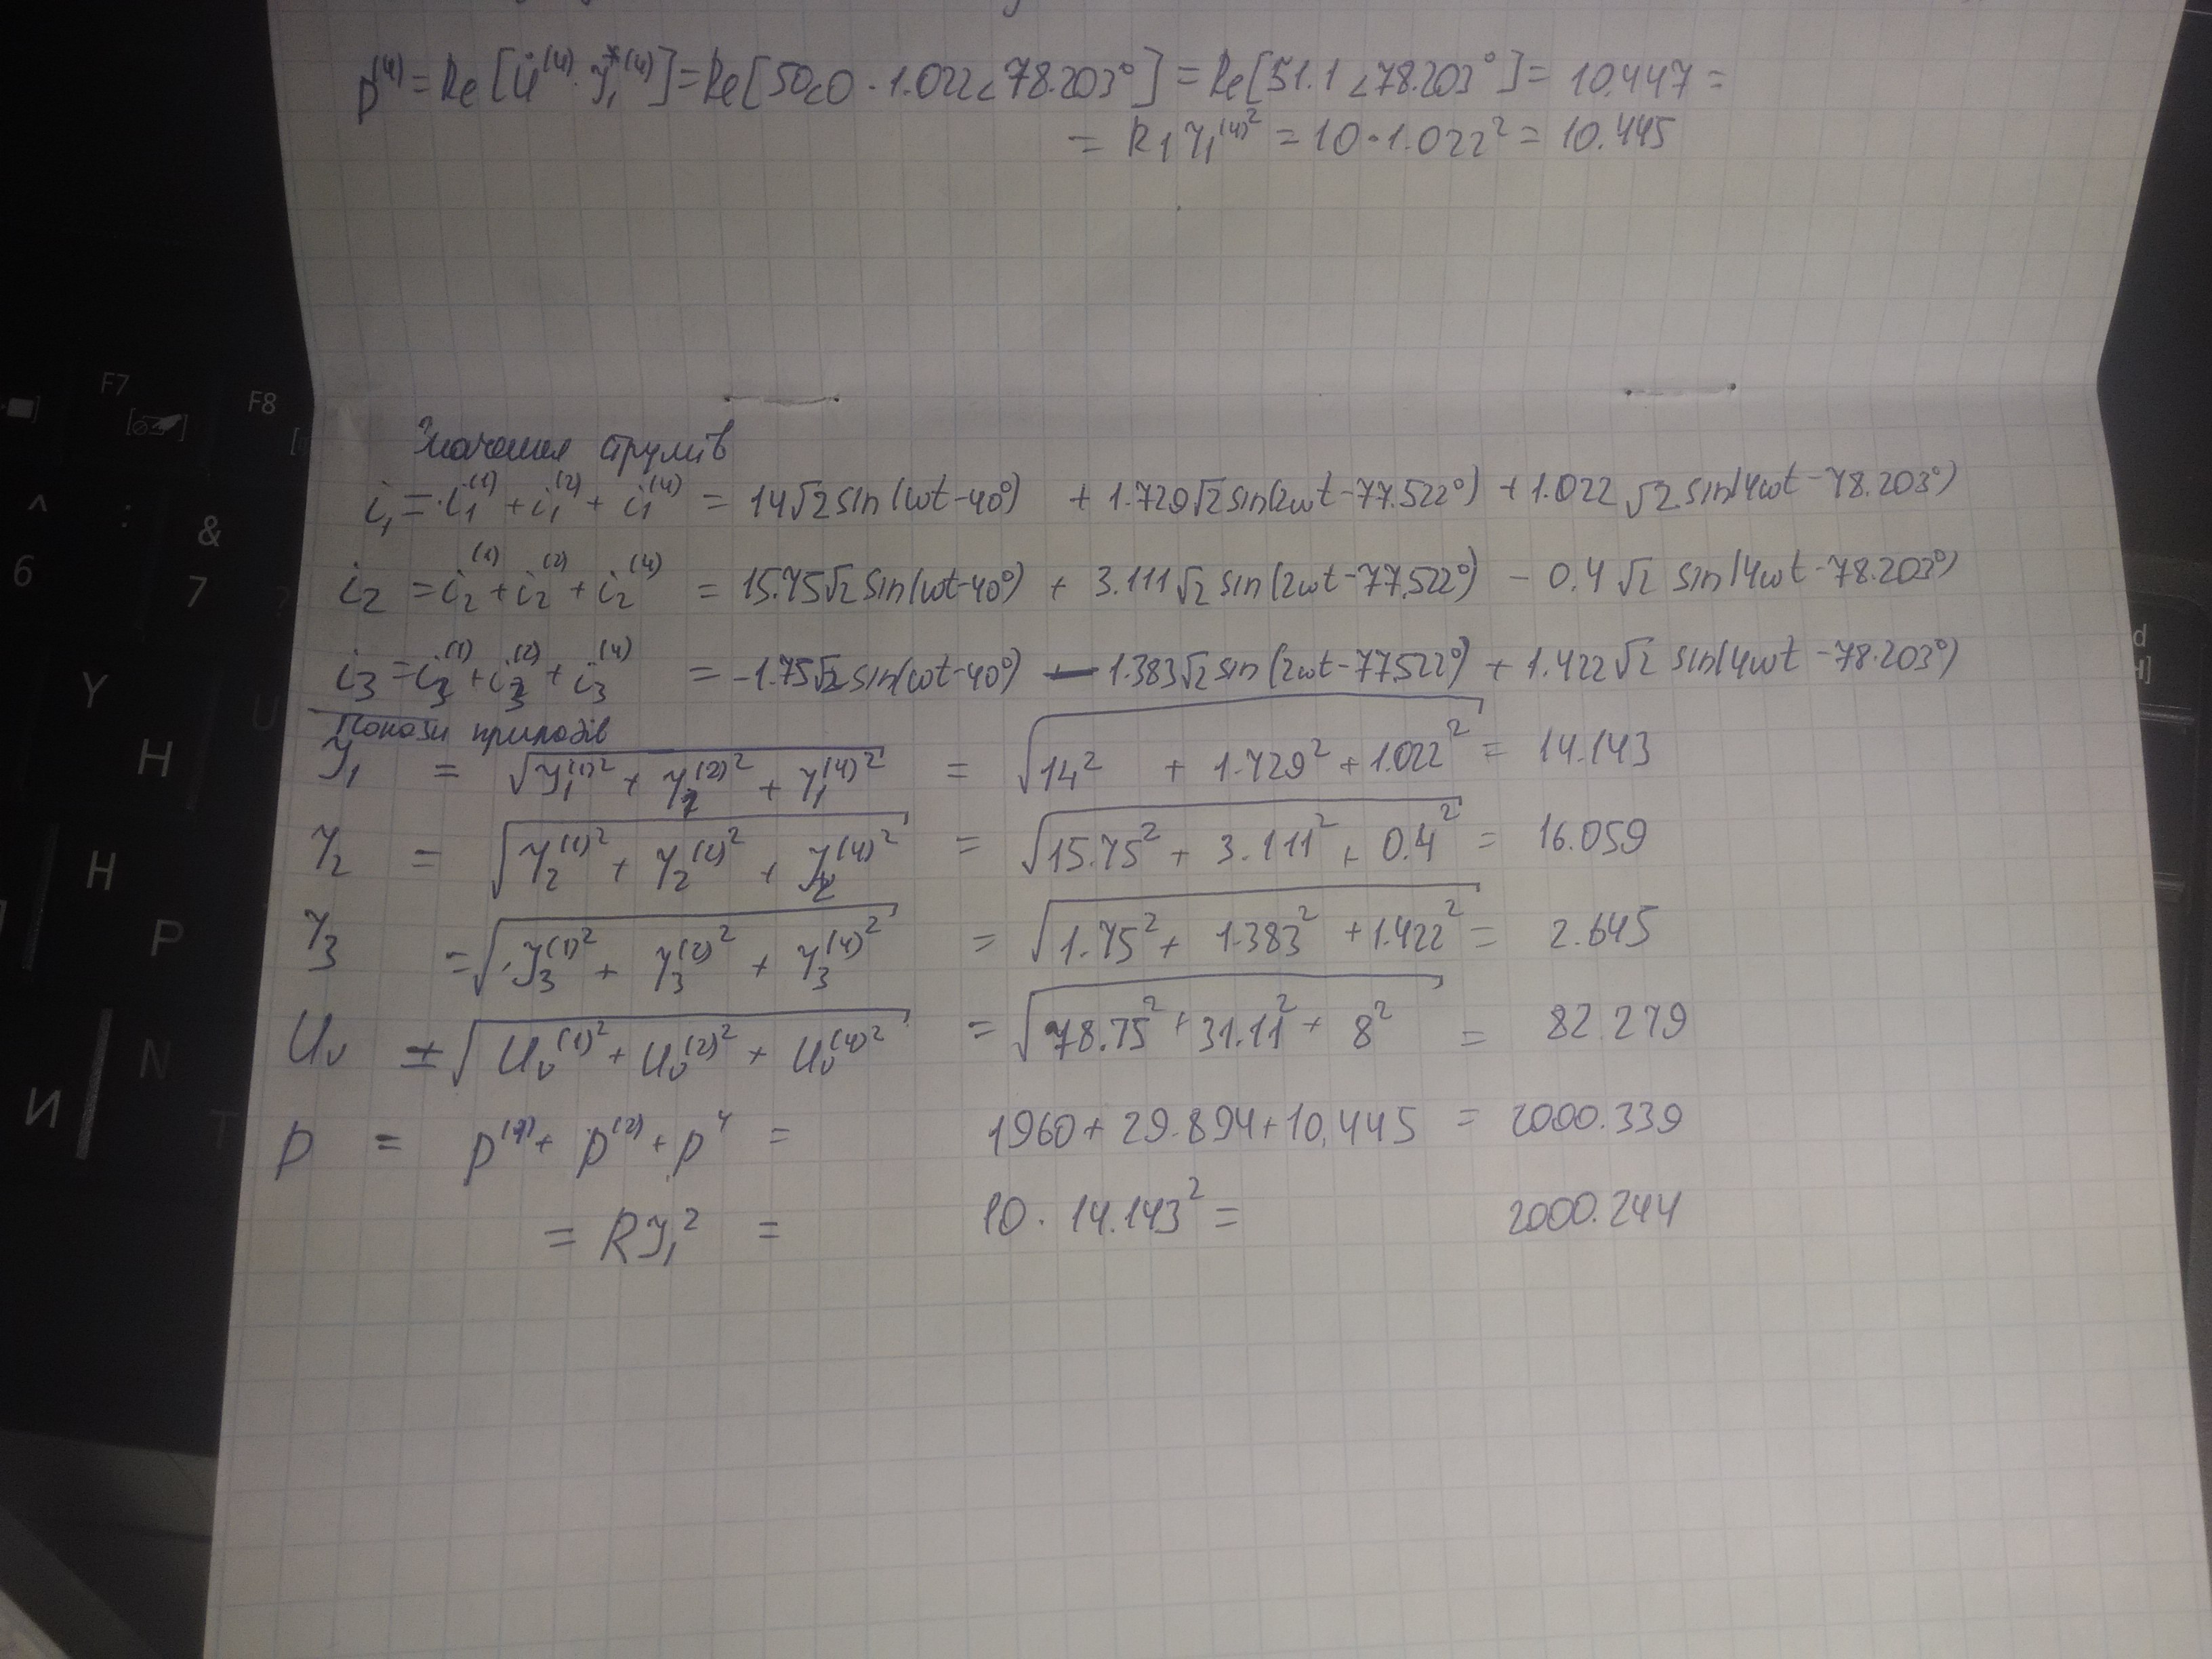 P⁽⁴⁾ = Re[U̇⁽⁴⁾ · I₁*⁽⁴⁾] = Re[50∠0 · 1.022∠78.203°] = Re[51.1∠78.203°] = 10.447 =
= R₁ I₁⁽⁴⁾² = 10 · 1.022² = 10.445
F7
F8
Значення струмів
i₁ = i₁⁽¹⁾ + i₁⁽²⁾ + i₁⁽⁴⁾ = 14√2 sin(ωt-40°) + 1.729√2 sin(2ωt-77.522°) + 1.022√2 sin(4ωt-78.203°)
^
6
:
&
7
i₂ = i₂⁽¹⁾ + i₂⁽²⁾ + i₂⁽⁴⁾ = 15.75√2 sin(ωt-40°) + 3.111√2 sin(2ωt-77.522°) - 0.4√2 sin(4ωt-78.203°)
?
d
i₃ = i₃⁽¹⁾ + i₃⁽²⁾ + i₃⁽⁴⁾ = -1.75√2 sin(ωt-40°) - 1.383√2 sin(2ωt-77.522°) + 1.422√2 sin(4ωt-78.203°)
Y
Н
U
Покази приладів
I₁ = √(I₁⁽¹⁾² + I₁⁽²⁾² + I₁⁽⁴⁾²) = √(14² + 1.729² + 1.022²) = 14.143
I₂ = √(I₂⁽¹⁾² + I₂⁽²⁾² + I₂⁽⁴⁾²) = √(15.75² + 3.111² + 0.4²) = 16.059
H
Р
I₃ = √(I₃⁽¹⁾² + I₃⁽²⁾² + I₃⁽⁴⁾²) = √(1.75² + 1.383² + 1.422²) = 2.645
Uᵥ = √(Uᵥ⁽¹⁾² + Uᵥ⁽²⁾² + Uᵥ⁽⁴⁾²) = √(78.75² + 31.11² + 8²) = 82.279
N
И
Т
P = P⁽¹⁾ + P⁽²⁾ + P⁴ = 1960 + 29.894 + 10,445 = 2000.339
= RI₁² = 10 · 14.143² = 2000.244